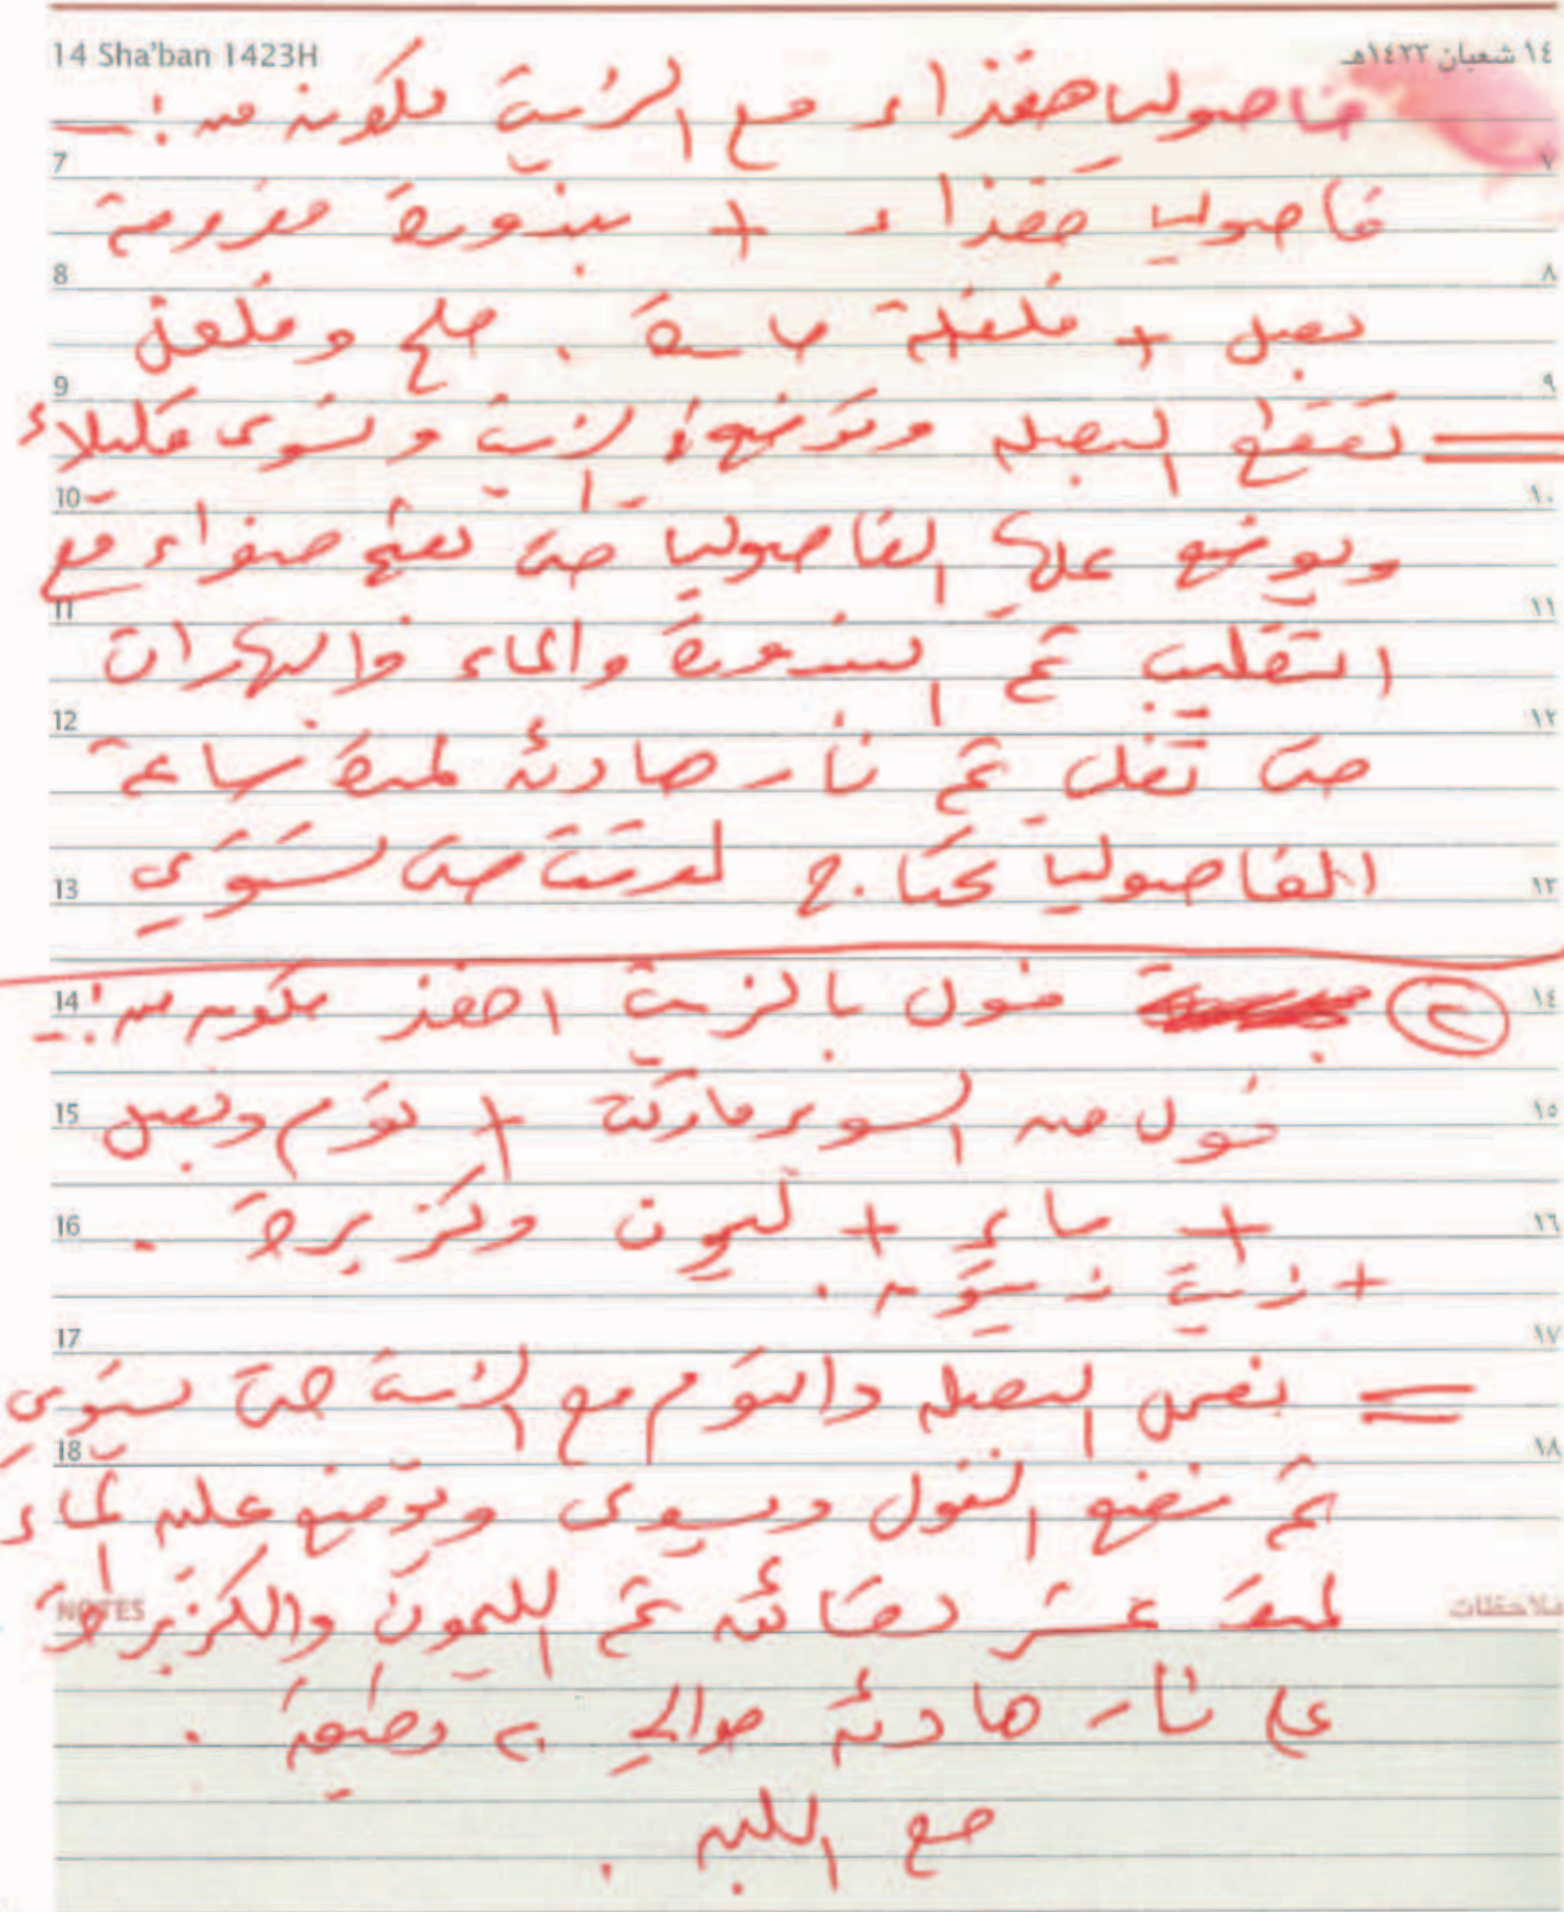 14 Sha'ban 1423H ١٤ شعبان ١٤٢٣هـ
فاصوليا خضراء مع الزيت مكونة من :-
7 ٧
فاصوليا خضراء + بندورة مفرومة
8 ٨
بصل + فلفلة يابسة . ملح وفلفل
9 ٩
= تقطع البصله وتوضع الزيت وتسوى قليلاء
10 ١٠
ويوضع عليها الفاصوليا حتى تصبح صفراء مع
11 ١١
التقليب ثم البندورة والماء والبهارات
12 ١٢
حتى تغلي ثم نار هادئه لمدة ساعة
الفاصوليا تحتاج لوقت حتى تستوي
13 ١٣
٢ فول بالزيت اخضر مكونه من :-
14 ١٤
فول من السوبر ماركت + ثوم وبصل
15 ١٥
+ ماء + ليمون وكزبرة .
16 ١٦
+ زيت زيتون .
17 ١٧
= نضع البصله والثوم مع الزيت حتى يستوي
18 ١٨
ثم نضع الفول ويسوى ويوضع عليه الماء
لمدة عشر دقائق ثم الليمون والكزبرة
NOTES ملاحظات
على نار هادئة حوالي ٢٠ دقيقة .
مع اللبن .